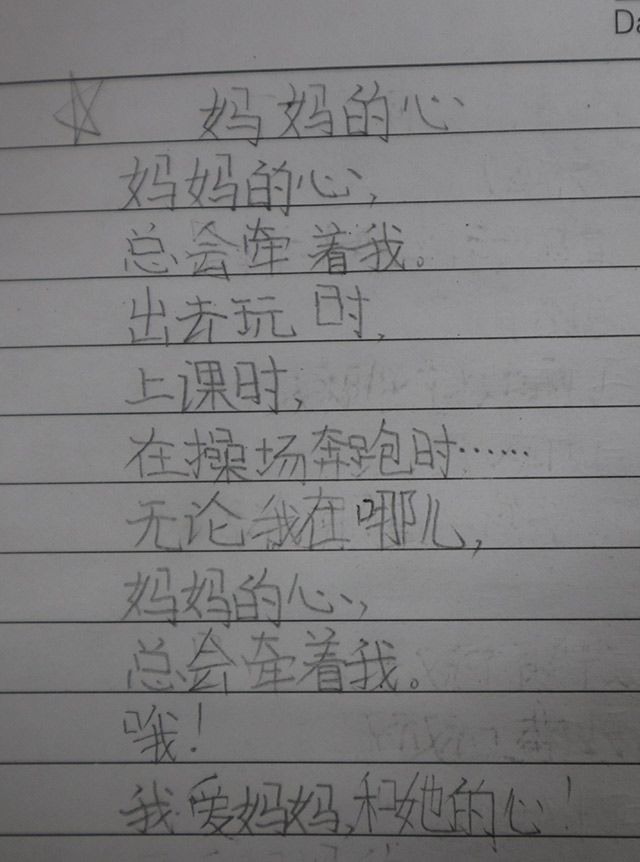 Da
☆ 妈妈的心
妈妈的心,
总会牵着我。
出去玩时,
上课时,
在操场奔跑时……
无论我在哪儿,
妈妈的心,
总会牵着我。
哦!
我爱妈妈,和她的心!